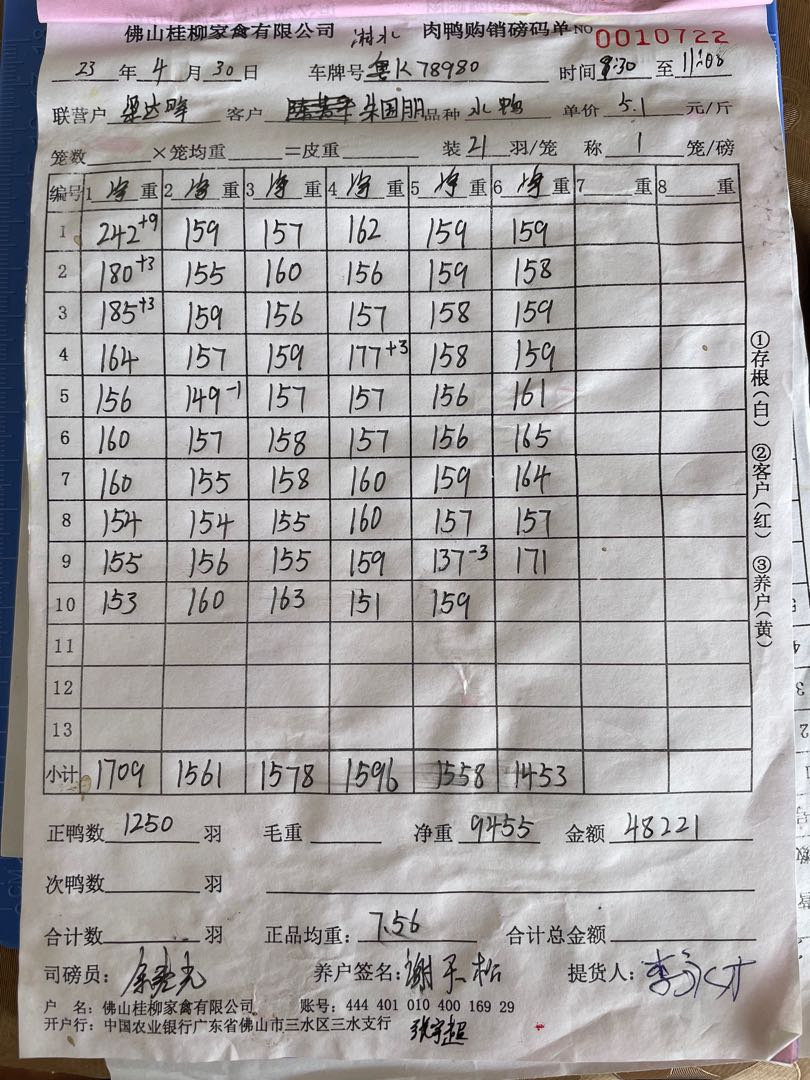 佛山桂柳家禽有限公司 淋水 肉鸭购销磅码单 NO 0010722
23 年 4 月 30 日 车牌号 粤K78980 时间 8:30 至 11:08
联营户 梁达晖 客户 朱国朋 品种 水鸭 单价 5.1 元/斤
笼数 ×笼均重 =皮重 装 21 羽/笼 称 1 笼/磅
编号 1 净 重 2 净 重 3 净 重 4 净 重 5 净 重 6 净 重 7 重 8 重
1 242+9 159 157 162 159 159
2 180+3 155 160 156 159 158
3 185+3 159 156 157 158 159
4 164 157 159 177+3 158 159
5 156 149-1 157 157 156 161
6 160 157 158 157 156 165
7 160 155 158 160 159 164
8 154 154 155 160 157 157
9 155 156 155 159 137-3 171
10 153 160 163 151 159
11
12
13
小计 1709 1561 1578 1596 1558 1453
正鸭数 1250 羽 毛重 净重 9455 金额 48221
次鸭数 羽
合计数 羽 正品均重: 7.56 合计总金额
司磅员: 养户签名: 谢天松 提货人:
户 名: 佛山桂柳家禽有限公司 账号: 444 401 010 400 169 29
开户行: 中国农业银行广东省佛山市三水区三水支行 张宇超
①存根(白) ②客户(红) ③养户(黄)